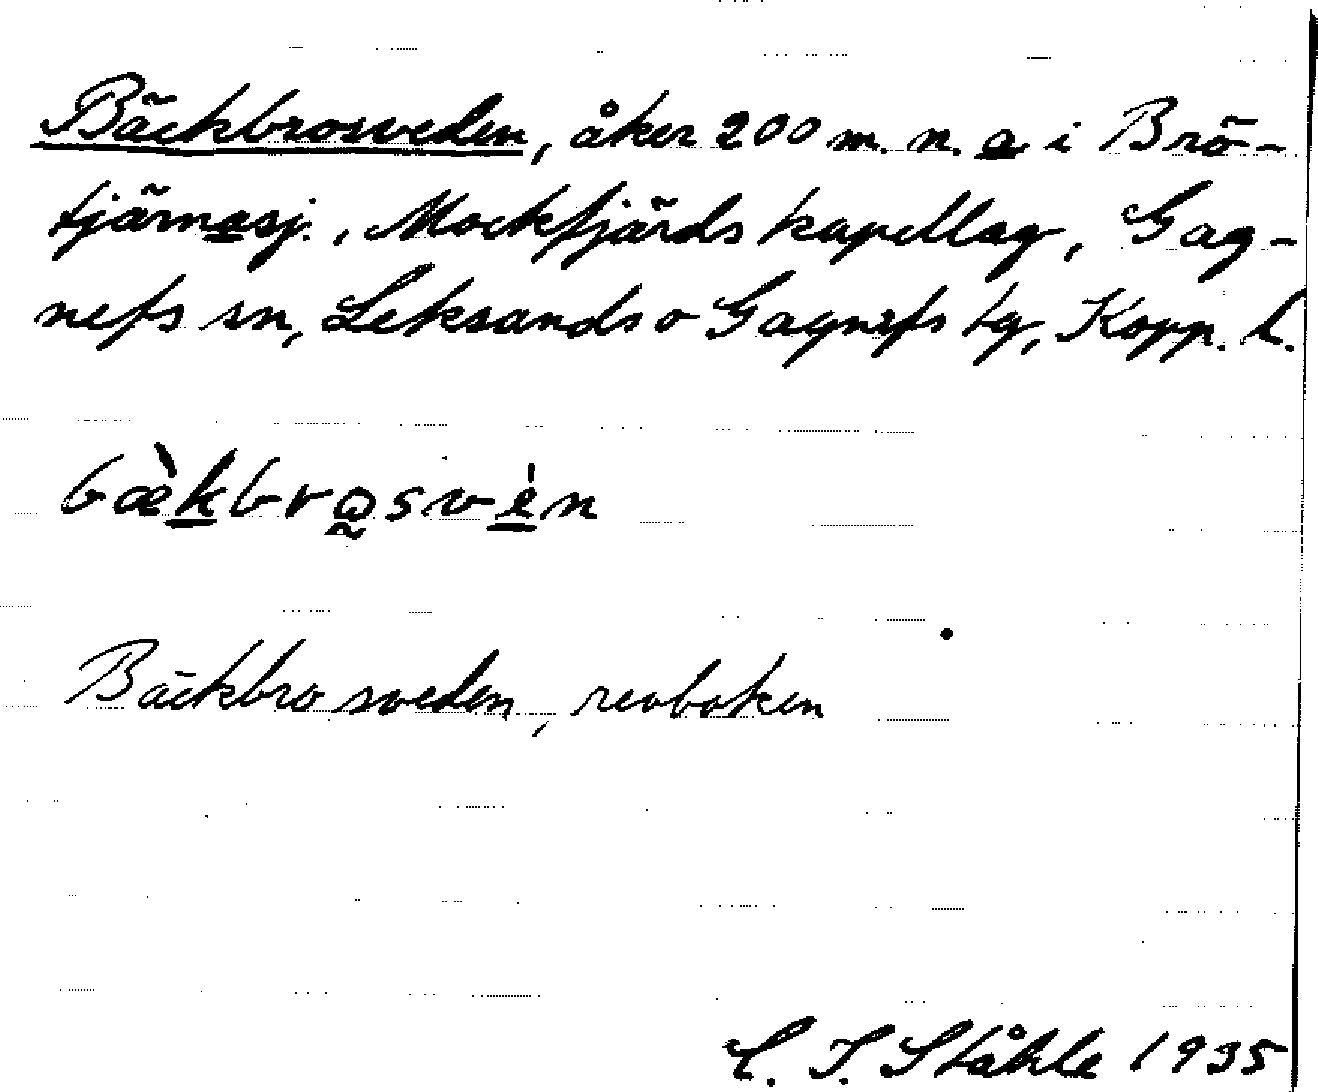 Bäckbrosveden, åker 200 m. n. o i Brö-
tjärnasj., Mockfjärds kapellag, Gag-
nefs sn, Leksands o Gagnefs tg, Kopp. l.
bæ̀kbrωsvèn
Bäckbro sveden, revboken
C. I. Ståhle 1935